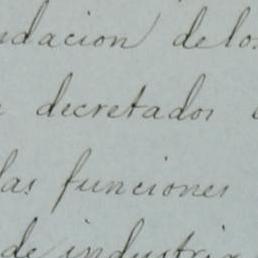 ndacion delos
decretados
las funciones
de industria